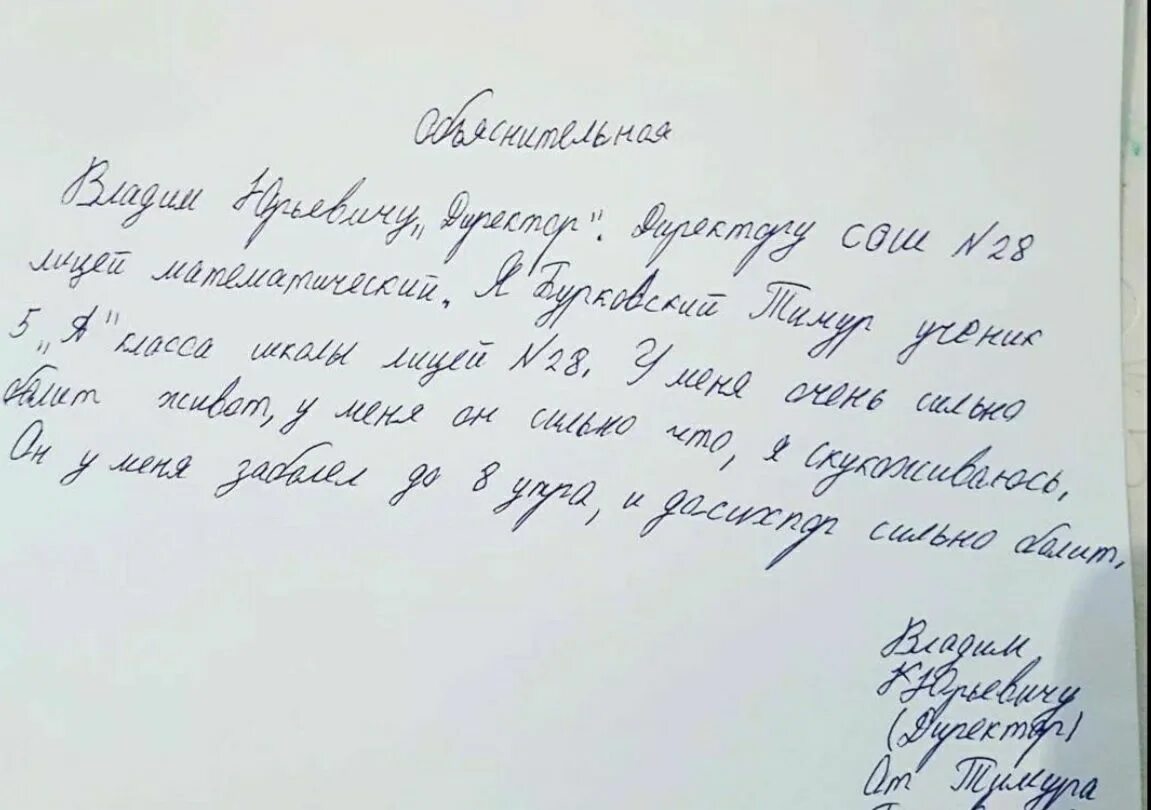 Объяснительная
Владим Юрьевичу „Директор". Директору СОШ N28
лицей математический. Я Бурковский Тимур ученик
5 „А" класса школы лицей N28. У меня очень сильно
болит живот, у меня он сильно что, я скукоживаюсь.
Он у меня заболел до 8 утра, и досихпор сильно болит.
Владим
Юрьевичу
(Директор)
От Тимура